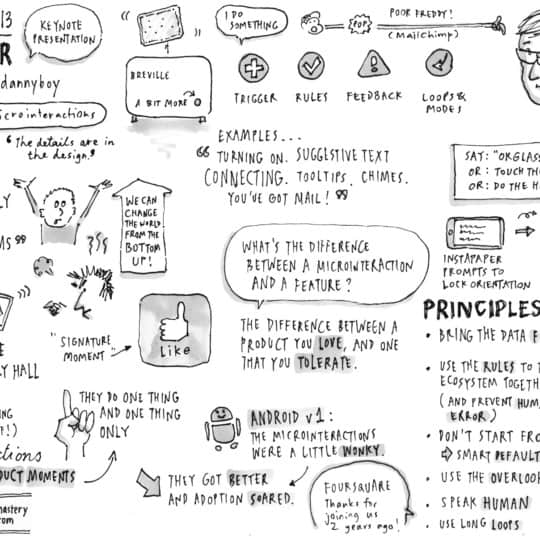 13
KEYNOTE
PRESENTATION
R
dannyboy
icrointeractions
"The details are in
the design."
" "
BREVILLE
A BIT MORE
I DO
SOMETHING
POP
POOR FREDDY!
(Mailchimp)
TRIGGER
RULES
FEEDBACK
LOOPS &
MODES
EXAMPLES...
" TURNING ON. SUGGESTIVE TEXT
CONNECTING. TOOLTIPS. CHIMES.
YOU'VE GOT MAIL! "
SAY: "OKGLASS
OR: TOUCH TH
OR: DO THE H
LY
MS"
WE CAN
CHANGE
THE WORLD
FROM THE
BOTTOM
UP!
WHAT'S THE DIFFERENCE
BETWEEN A MICROINTERACTION
AND A FEATURE?
INSTAPAPER
PROMPTS TO
LOCK ORIENTATION
"SIGNATURE
MOMENT"
Like
THE DIFFERENCE BETWEEN A
PRODUCT YOU LOVE, AND ONE
THAT YOU TOLERATE.
PRINCIPLES
• BRING THE DATA F
• USE THE RULES TO T
ECOSYSTEM TOGETH
(AND PREVENT HUM
ERROR)
• DON'T START FRO
SMART DEFAULT
• USE THE OVERLOO
• SPEAK HUMAN
• USE LONG LOOPS
E
Y HALL
THEY DO ONE THING
AND ONE THING
ONLY
ING
F!)
ctions
DUCT MOMENTS
ANDROID v1:
THE MICROINTERACTIONS
WERE A LITTLE WONKY.
THEY GOT BETTER
AND ADOPTION SOARED.
FOURSQUARE
Thanks for
joining us
2 years ago!
mastery
om